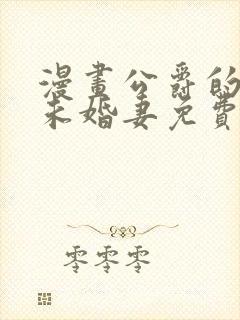 漫畫公爵的
未婚妻免費
零零零